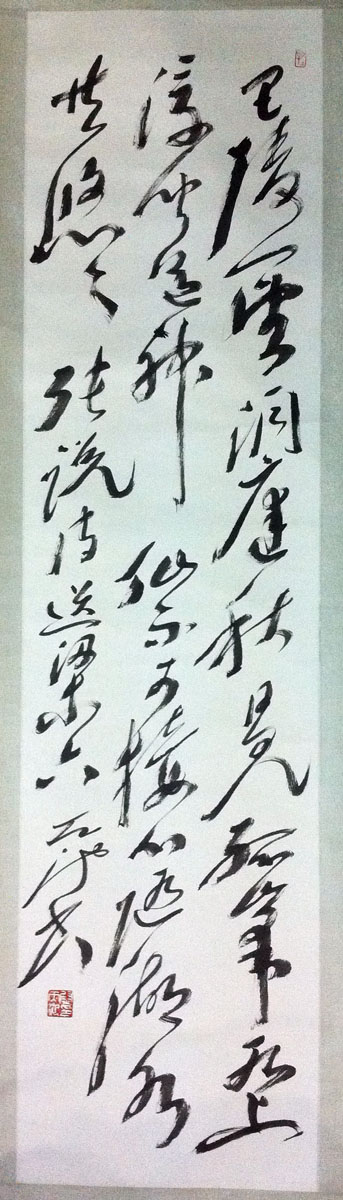 巴陵一望洞庭秋日見孤峯水上
浮聞道神仙不可接心隨湖水
共悠々張説詩送梁六